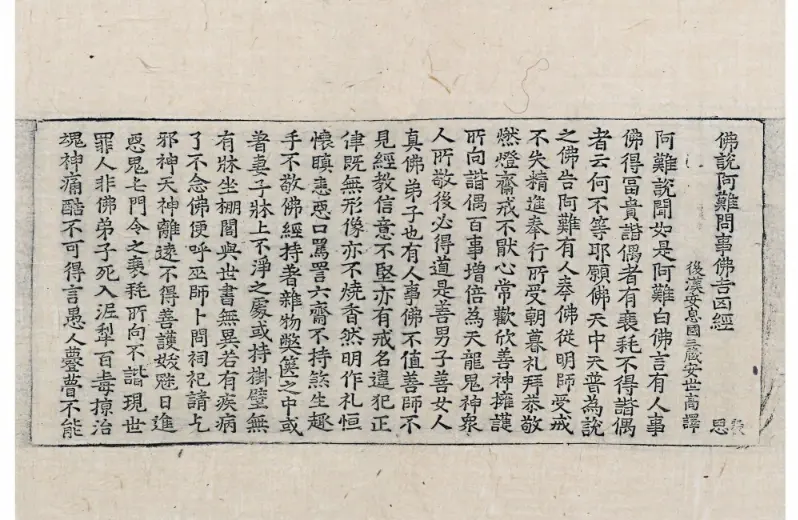 佛說阿難問事佛吉凶經 思
後漢安息國三藏安世高譯
阿難說聞如是阿難白佛言有人事
佛得冨貴諧偶者有衰秏不得諧偶
者云何不等耶願佛天中天普為說
之佛告阿難有人奉佛從明師受戒
不失精進奉行所受朝暮礼拜恭敬
燃燈齋戒不猒心常歡欣善神擁護
所向諧偶百事增倍為天龍鬼神衆
人所敬後必得道是善男子善女人
真佛弟子也有人事佛不值善師不
見經教信意不堅亦有戒名違犯正
律既無形像亦不燒香然明作礼恒
懷瞋恚惡口罵詈六齋不持煞生趣
手不敬佛經持著雜物弊篋之中或
著妻子牀上不淨之處或持樹壁無
有牀坐棚閣與世書無異若有疾病
了不念佛便呼巫師卜問祠祀請乞
邪神天神離遠不得善護妖魅日進
惡鬼屯門令之衰秏所向不諧現世
罪人非佛弟子死入泥犁百毒掠治
魂神痛酷不可得言愚人瞢不能